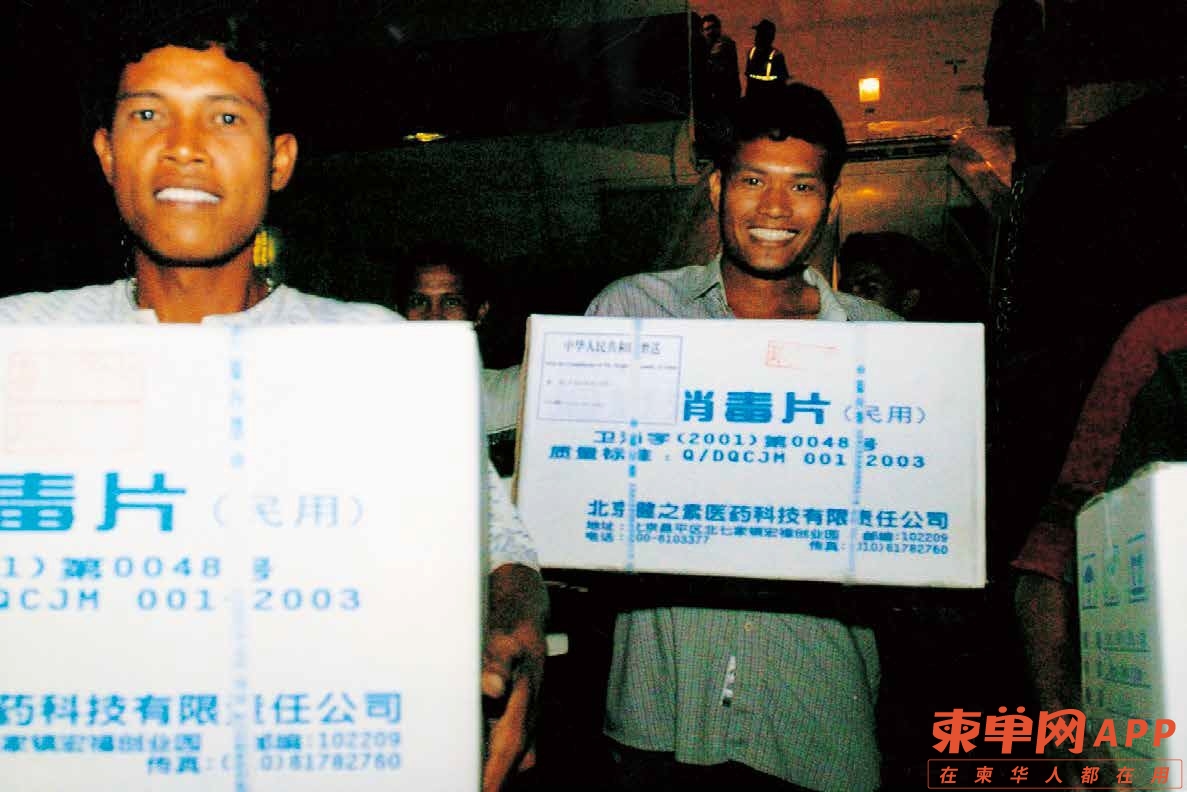 毒片(民用)
1)第0048号
QCJM 001-2003
药科技有限责任公司
家镇宏福创业园 邮编:102209
传真:(010)81782760
中华人民共和国赠送
消毒片(民用)
卫消字(2001)第0048号
质量标准:Q/DQCJM 001-2003
北京健之素医药科技有限责任公司
地址:北京昌平区北七家镇宏福创业园 邮编:102209
电话: 00-8103377 传真:(010)81782760
柬单网APP
在柬华人都在用